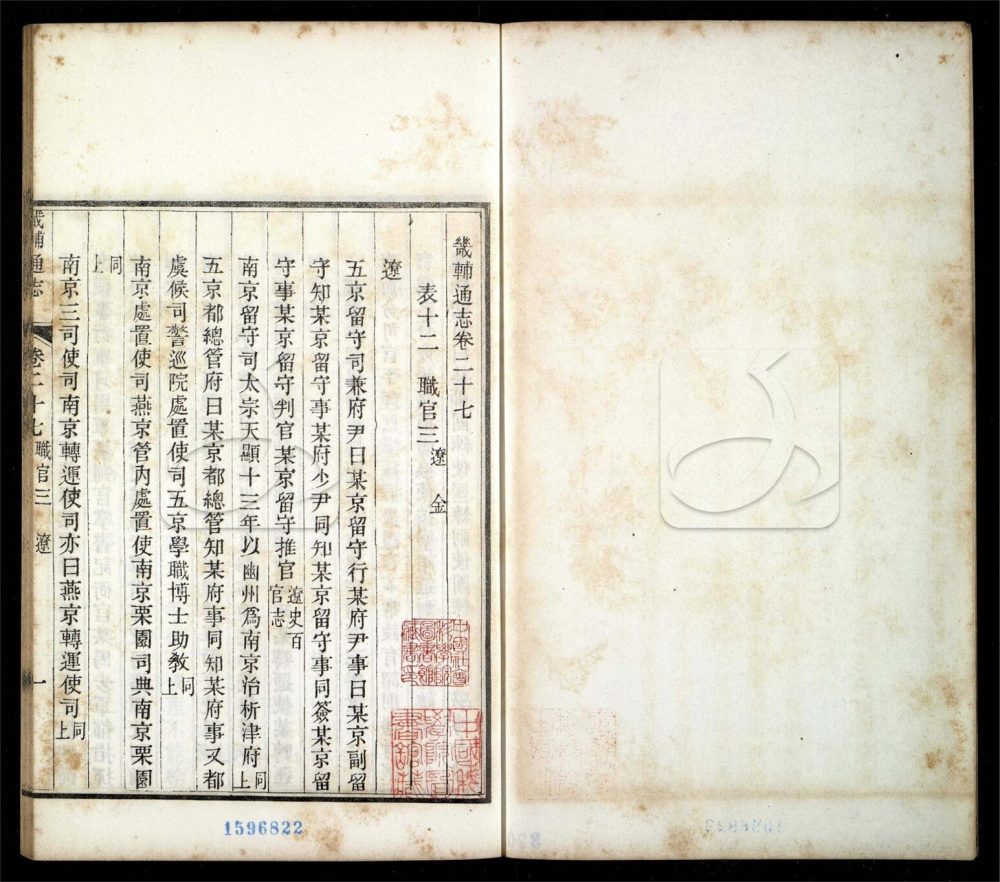 畿輔通志卷二十七
表十二 職官三 遼 金
遼
五京留守司兼府尹曰某京留守行某府尹事曰某京副留
守知某京留守事某府少尹同知某京留守事同簽某京留
守事某京留守判官某京留守推官 遼史百官志
南京留守司太宗天顯十三年以幽州爲南京治析津府 同上
五京都總管府曰某京都總管知某府事同知某府事又都
虞候司警巡院處置使司五京學職博士助敎 同上
南京處置使司燕京管內處置使南京栗園司典南京栗園
同上
南京三司使司南京轉運使司亦曰燕京轉運使司 同上
畿輔通志 卷二十七 職官三 遼 一
1596822